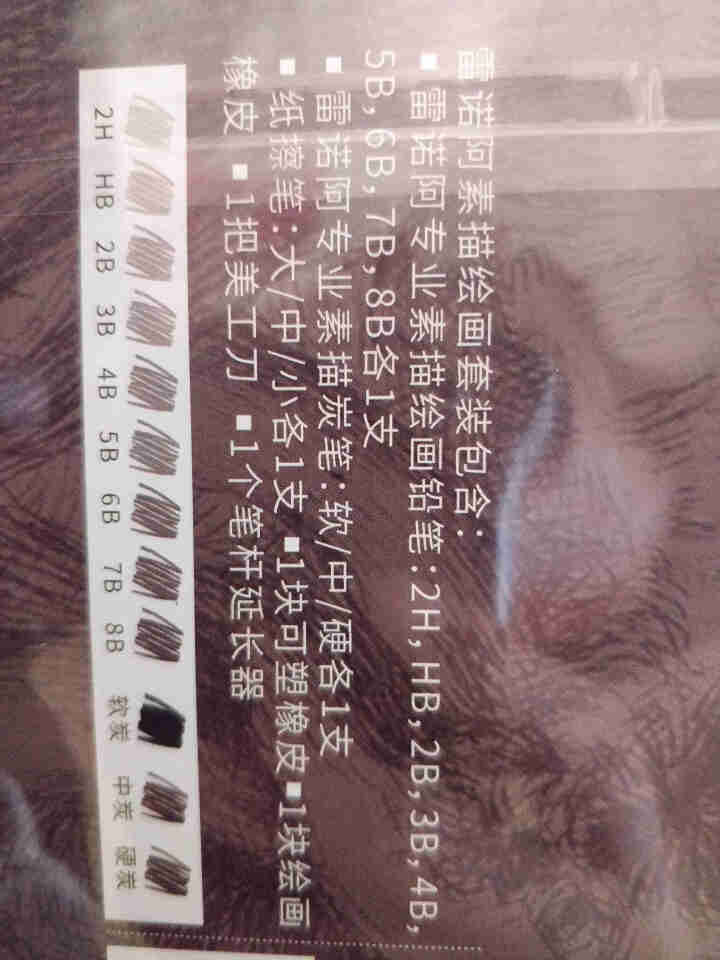 雷诺阿素描绘画套装包含：
▪雷诺阿专业素描绘画铅笔：2H, HB, 2B, 3B, 4B,
5B, 6B, 7B, 8B各1支
▪雷诺阿专业素描炭笔：软/中/硬各1支
▪纸擦笔：大/中/小各1支 ▪1块可塑橡皮 ▪1块绘画
橡皮 ▪1把美工刀 ▪1个笔杆延长器
2H HB 2B 3B 4B 5B 6B 7B 8B 软炭 中炭 硬炭